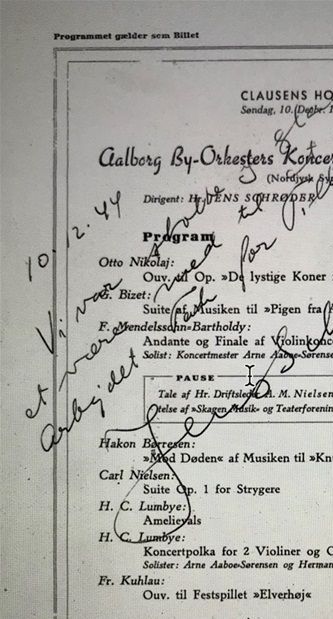 Programmet gælder som Billet
CLAUSENS HO
Søndag, 10. Decbr. 1
Aalborg By-Orkesters Koncer
(Nordjysk Sy
Dirigent: Hr. JENS SCHRØDER
Program
Otto Nikolaj:
Ouv. til Op. »De lystige Koner i
G. Bizet:
Suite af Musiken til »Pigen fra A
F. Mendelssohn-Bartholdy:
Andante og Finale af Violinkonce
Solist: Koncertmester Arne Aaboe-Sørense
PAUSE
Tale af Hr. Driftsleder A. M. Nielsen
telse af »Skagen Musik- og Teaterforenin
Hakon Børresen:
»Mod Døden« af Musiken til »Kn
Carl Nielsen:
Suite Op. 1 for Strygere
H. C. Lumbye:
Amelievals
H. C. Lumbye:
Koncertpolka for 2 Violiner og O
Solister: Arne Aaboe-Sørensen og Herman
Fr. Kuhlau:
Ouv. til Festspillet »Elverhøj«
10.12.44
Vi var stolte
at være med til
Arbejdet Tak for
Jens